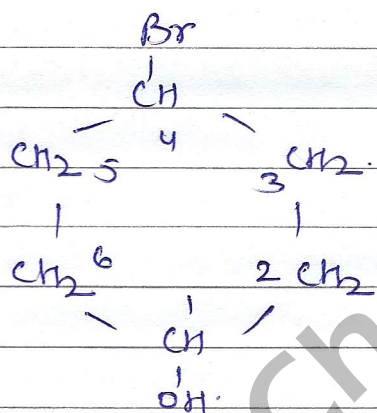 Br
CH
4
CH2 5 3 CH2.
CH2 6 2 CH2
CH
OH.
Ch